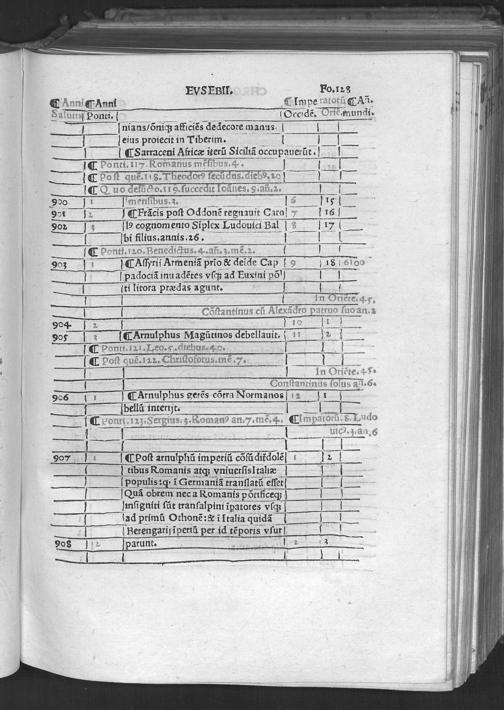 EVSEBII. Fo.128
¶ Anni ¶ Anni ¶ Impe ratorũ ¶ Añ.
Salutis Ponti. Occidẽ. Oriẽ. mundi.
nians/õniq afficiẽs dedecore manus
eius proiecit in Tiberim.
¶ Sarraceni Africæ iterũ Siciliã occupauerũt.
¶ Ponti.117.Romanus mẽsibus.4.
¶ Post quẽ.118.Theodorꝰ secũdus.diebꝰ.20
¶ Quo defũcto.119.succedit Ioãnes.9.añ.2.
900 1 mensibus.2. 6 15
901 2 ¶ Frãcis post Oddonẽ regnauit Caro 7 16
902 3 lꝰ cognomento Siplex Ludouici Bal 8 17
bi filius.annis.26.
¶ Ponti.120.Benedictus.4.añ.3.mẽ.2.
903 1 ¶ Assyrii Armeniã prĩo & deĩde Cap 9 18 6100
padociã inuadẽtes vsq ad Euxini põ
ti litora prædas agunt.
In Oriẽte.45.
Cõstantinus cũ Alexãdro patruo suo an.2
904 2 10 1
905 3 ¶ Arnulphus Magũtinos debellauit. 11 2
¶ Ponti.121.Leo.5.diebus.40.
¶ Post quẽ.122.Christoforus.mẽ.7.
In Oriẽte.45.
Constantinus solus añ.6.
906 1 ¶ Arnulphus gerẽs cõtra Normanos 12 1
bellũ interijt.
¶ Ponti.123.Sergius.3.Romanꝰ an.7.mẽ.4. ¶ Impatorũ.8.Ludo
uicꝰ.3.an.6
907 1 ¶ Post arnulphũ imperiũ cõsũ dirdolẽ 1 2
tibus Romanis atq vniuersis Italiæ
populis:q i Germaniã translatũ esset
Quã obrem nec a Romanis põtificeq
insigniri sũt transalpini ĩpatores vsq
ad primũ Othonẽ:& ĩ Italia quidã
Berengarij ĩperiũ per id tẽporis vsur
908 2 parunt. 2 3